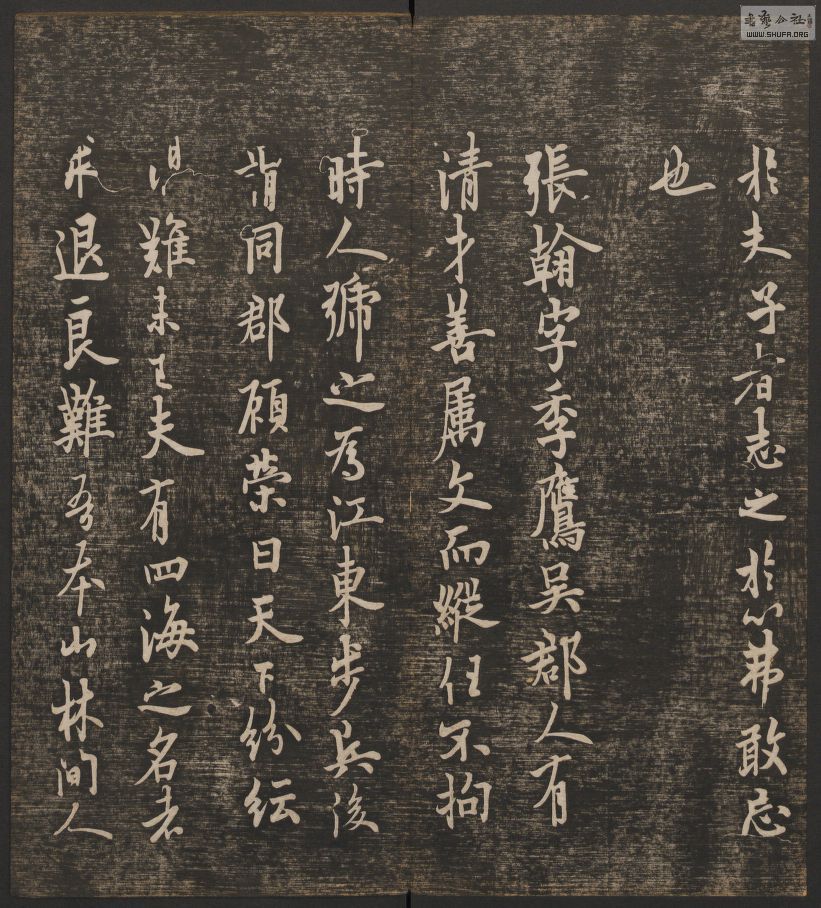 於夫子者志之於心弗敢忘
也
張翰字季鷹吳郡人有
清才善属文而縱任不拘
時人號之為江東步兵後
謂同郡顧榮曰天下紛紜
禍難未已夫有四海之名者
求退良難吾本山林間人
書藝公社
WWW.SHUFA.ORG